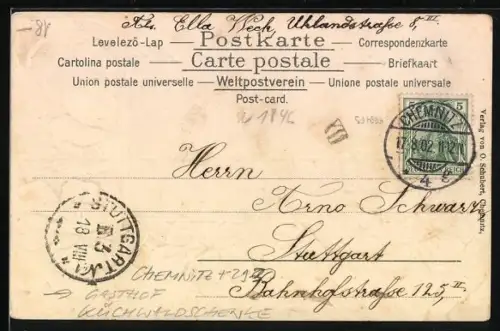 -81
Abs. Ella Wech, Uhlandstraße 8, III
Levelező-Lap — Postkarte — Correspondenzkarte
Cartolina postale — Carte postale — Briefkaart
Union postale universelle — Weltpostverein — Unione postale universale
Post-card.
5
5
CHEMNITZ
17.8.02.11-12
4
Verlag von O. Schubert, Chemnitz.
Herrn
Arno Schwarz
Stuttgart
Bahnhofstraße 125, II
STUTTGART No 1
3
18 VIII
CHEMNITZ + 29
→ GASTHOF
KÜCHWALDSCHENKE